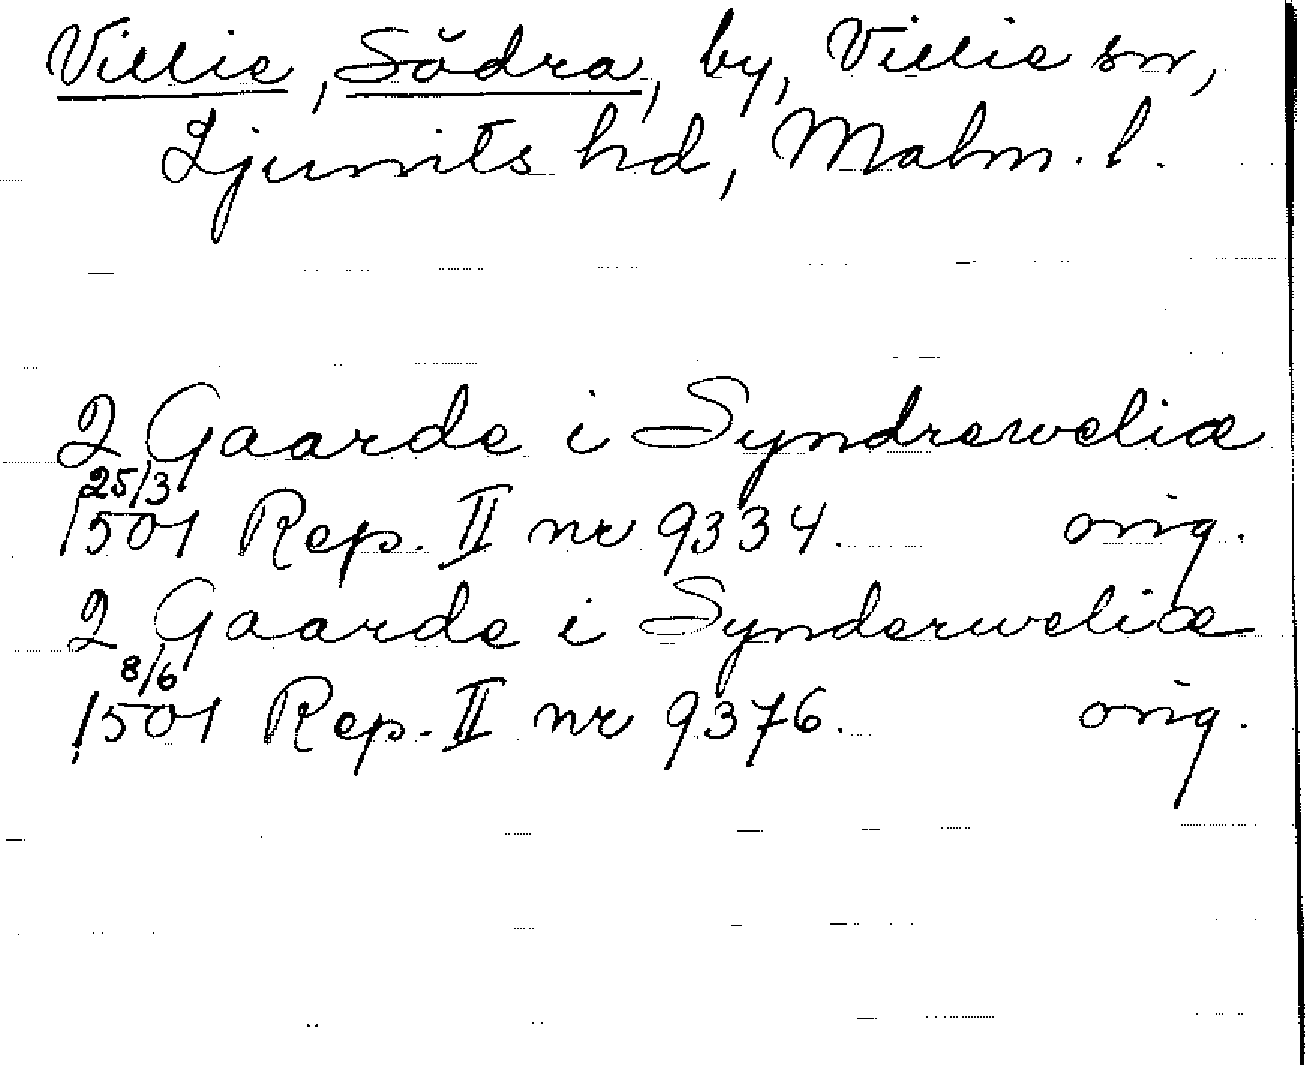 Villie, Södra, by, Villie sn,
Ljunits hd, Malm. l.
2 Gaarde i Syndreweliæ
25/3
1501 Rep. II nr 9334. orig.
2 Gaarde i Synderweliæ
8/6
1501 Rep. II nr 9376. orig.